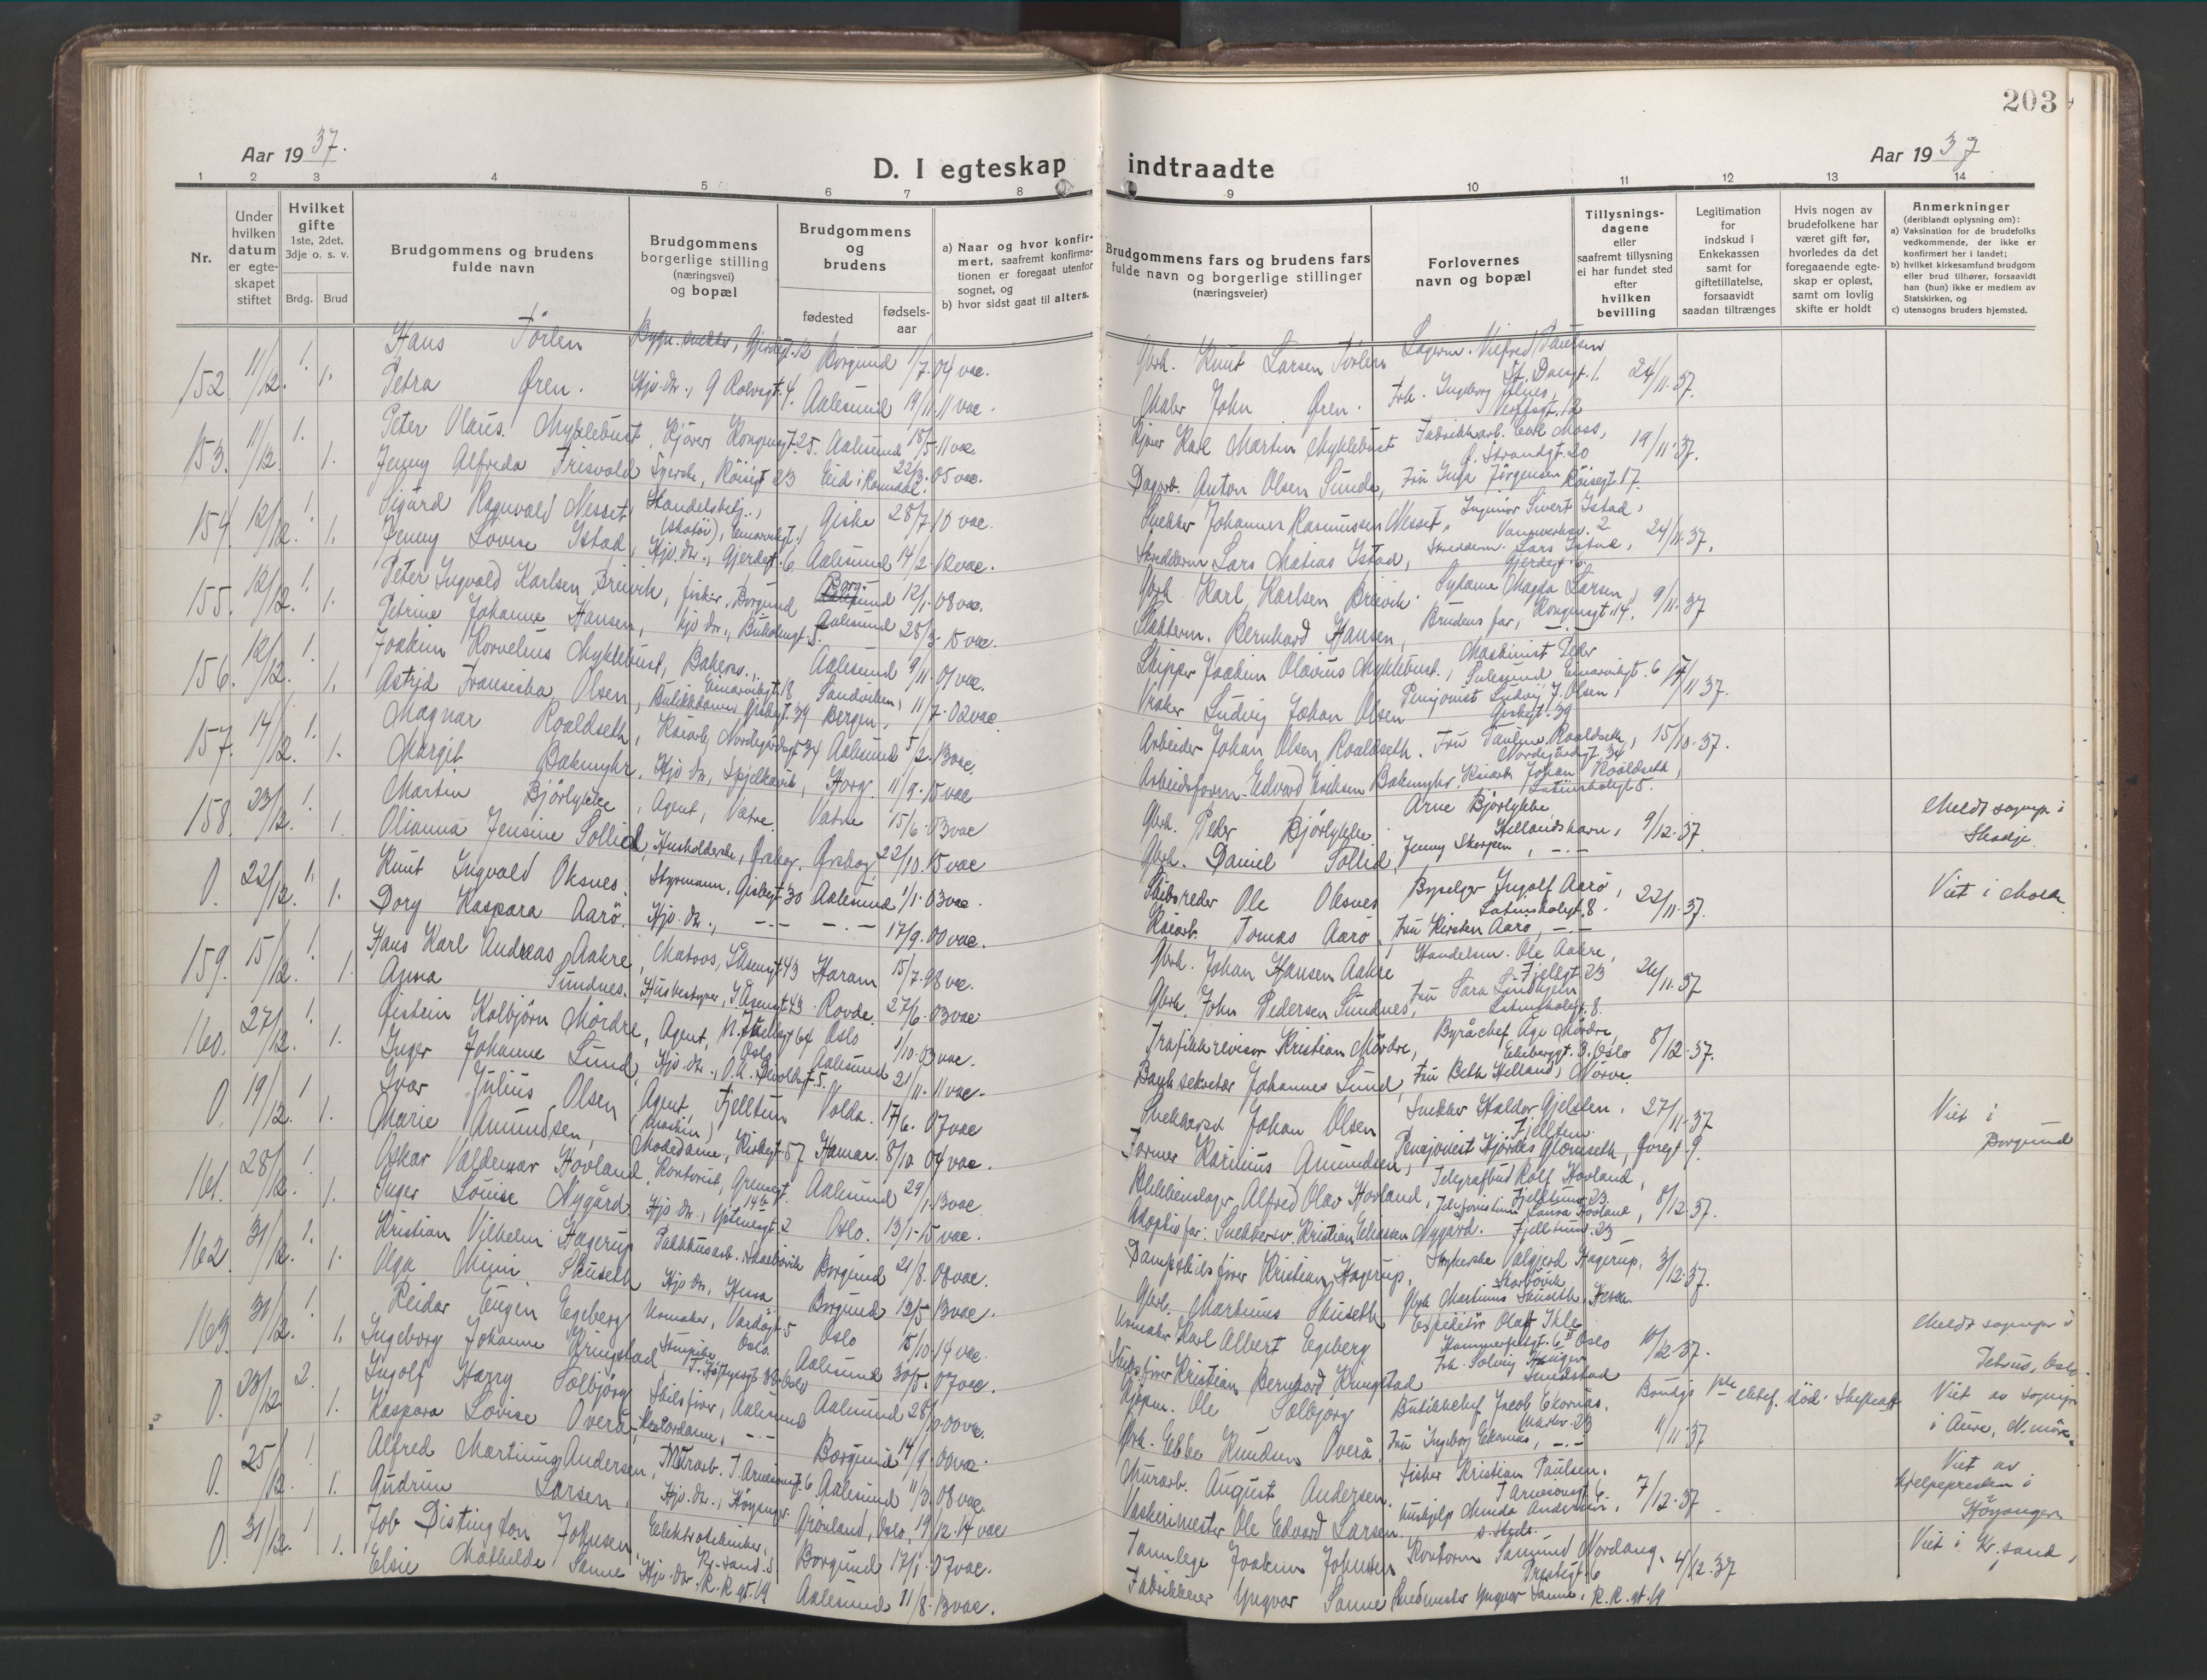 203
Aar 1937.
D. I egteskap
indtraadte
Aar 1937
1 2 3 4 5 6 7 8 9 10 11 12 13 14
Nr.
Under hvilken datum er egteskapet stiftet
Hvilket gifte 1ste, 2det, 3dje o. s. v.
Brdg. Brud
Brudgommens og brudens fulde navn
Brudgommens borgerlige stilling (næringsvei) og bopæl
Brudgommens og brudens
fødested
fødselsaar
a) Naar og hvor konfirmert, saafremt konfirmationen er foregaat utenfor sognet, og
b) hvor sidst gaat til alters.
Brudgommens fars og brudens fars fulde navn og borgerlige stillinger (næringsveier)
Forlovernes navn og bopæl
Tillysningsdagene eller saafremt tillysning ei har fundet sted efter hvilken bevilling
Legitimation for indskud i Enkekassen samt for giftetillatelse, forsaavidt saadan tiltrænges
Hvis nogen av brudefolkene har været gift før, hvorledes da det foregaaende egteskap er opløst, samt om lovlig skifte er holdt
Anmerkninger (deriblandt oplysning om):
a) Vaksination for de brudefolks vedkommende, der ikke er konfirmert her i landet;
b) hvilket kirkesamfund brudgom eller brud tilhører, forsaavidt han (hun) ikke er medlem av Statskirken, og
c) utensogns bruders hjemsted.
152 11/12. 1. Hans Törlen Bygn.snekker, Gjerdegt. 12 Borgund 1/7.04 vac. Gbrk. Knut Larsen Törlen
1. Petra Øren. Hjv. dtr., G Rolvsgt. 4. Aalesund 19/11.11 vac. Maler John Øren. Frk. Ingeborg 24/11.37.
153. 11/12. 1. Peter Olaus Myklebust, Kjörer, Kongensgt. 25. Aalesund 18/5.11 vac. Kjörer Karl Martin Myklebust Fabrikkarb. Carl Moss, Ø. Strandgt. 20 19/11.37.
1. Jenny Alfreda Frisvold Syerske, Röisgt 23 Eid i Romsdal. 22/3.05 vac. Dagarb. Anton Olsen Sunde, Fru Inga Jörgensen Röisegt 17.
154. 12/12. 1. Sigurd Ragnvald Nesset, Handelsbetj., (skotöi), Einarvikgt. 1 Giske 28/7.10 vac. Snekker Johannes Rasmussen Nesset, Ingeniör Sivert Istad,
1. Jenny Lovise Istad, Hjv. dtr., Gjerdegt. 6 Aalesund 14/2.12 vac. Skredderm. Lars Matias Istad, Skredderm. Lars Istad, Gjerdegt 6. 24/11.37.
155. 12/12. 1. Peter Ingvald Karlsen Breivik, fisker, Borgund Borgund 12/1.08 vac. Gbrk. Karl Karlsen Breivik. Sydame Magda Larsen, Kongensgt. 14. 9/11.37
1. Petrine Johanne Hansen, Hjv dtr., Buholmgt. 5. Aalesund 25/3.15 vac. Slakterm. Bernhard Hansen, Brudens far, —.—
156. 12/12. 1. Joakim Kornelius Myklebust, Bakersv., Einarvikgt. 8 Aalesund 9/11.07 vac. Skipper Joakim Olavius Myklebust, Maskinist Peder Sulesund Einarvikgt. 6 17/11 37.
1. Astrid Fransiska Olsen, Butikkdame Giskegt. 39 Sandviken, Bergen, 11/7.02 vac. Vraker Ludvig Johan Olsen Pensjonist Ludvig J. Olsen, Giskegt. 39
157. 14/12. 1. Magnar Roaldseth, Kaiarb, Nordregårdsgt 34 Aalesund 5/2.13 vac. Arbeider Johan Olsen Roaldseth. Fru Pauline Roaldseth, Nordregårdsgt. 34 15/10.37.
1. Margit Bakmyhr, Hjv dtr, Spjelkavik, Horg. 11/9.15 vac Arbeidsform. Edvard Eriksen Bakmyhr. Kaiarb Johan Roaldseth, Latinskolegt 5.
158. 23/12. 1. Martin Björlykke, Agent, Vatne. Vatne 15/6.03 vac Gbrk. Peder Björlykke. Arne Björlykke Hellandshavn, 9/12.37. Meldt sognepr. i Skodje.
1. Olianna Jensine Sollid, Husholderske, Ørskog. Ørskog 22/10.15 vac Gbrk. Daniel Sollid, Jenny Skorpen, —.—
0. 22/12. 1. Knut Ingvald Oksnes. Styrmann, Giskegt 30 Aalesund 1/1.03 vac. Skibsreder Ole Oksnes Byselger Ingolf Aarö, Latinskolegt. 8. 22/11.37. Viet i Molde
1. Dory Kaspara Aarö. Hjv. dtr., —.— —.— 17/9.00 vac. Kaiarb. Tomas Aarö, Fru Kirsten Aarö, —.—
159. 15/12. 1. Hans Karl Andreas Aakre, Matros, I. Åsensgt 43 Haram 15/7.98 vac. Gbrk. Johan Hansen Aakre Handelsm. Ole Aakre, Fjellgt 23 26/11.37
1. Anna Sundnes. Husbestyrer, I. Åsensgt 43 Rovde. 27/6.03 vac Gbrk. John Pedersen Sundnes, Fru Sara Latinskolegt. 8.
160. 27/12. 1. Öistein Kolbjörn Mördre, Agent, Oslo Oslo 1/10.03 vac. Trafikkrevisor Kristian Mördre, Byråchef Åge Mördre, Ekeberggt. 3. Oslo 8/12.37.
1. Inger Johanne Lund, Hjv. dtr., Aalesund 21/11.11 vac. Banksekretær Johannes Lund, Fru Beth Helland, Nörve
0. 19/12. 1 Ivar Julius Olsen Agent, (maskin) Fjelltun Volda. 17/6.07 vac Snekkersv Johan Olsen Snekker Haldor Gjelsten, Fjelltun. 27/11.37 Viet i Borgund
1. Marie Amundsen, Modedame, Kirkegt. 57 Hamar. 8/10 04 vac. Former Karinius Amundsen, Pensjonist Hjördis Glomseth,
161. 28/12. 1. Oskar Valdemar Hovland, Kontorist, Grensegt. 14 b Aalesund 29/1.13 vac. Blikkenslager Alfred Olav Hovland, Telegrafbud Rolf Hovland, Fjelltun 23. 8/12.37.
1. Inger Louise Nygård. Hjv dtr., Oslo. 13/1.15 vac. Adoptivfar: Snekkersv. Kristian Eliassen Nygård. Telefonistinne Laura Hovland, Fjelltun 23
162. 31/12. 1. Kristian Vilhelm Hagerup Pakkhusarb. Skarbövik Borgund 21/8.08 vac. Dampskibsförer Kristian Hagerup, Strykerske Valgjerd Hagerup, Skarbövik 3/12.37.
1. Olga Mimi Skuseth Hjv dtr, Hessa Borgund 12/5 13 vac. Gbrk. Martinus Skuseth Gbrk Martinus Skuseth, Hessa.
163. 31/12. 1. Reidar Eugen Egeberg Urmaker, Vardögt 5 Oslo. Oslo 15/10.14 vac. Urmaker Karl Albert Egeberg Expeditör Olaf Ihle Hammerfestgt. 6 II Oslo 10/12.37. Meldt sognepr. i Petrus, Oslo
1. Ingeborg Johanne Kringstad Oslo Aalesund 30/5.07 vac. Skibsförer Kristian Bernhard Kringstad Frk. Solveig
0. 23/12 2. Ingolf Harry Solbjörg Skibsförer, Aalesund Aalesund 28/10.00 vac. Skippr. Ole Solbjorg Butikkchef Jacob Ekornås, 11/11.37 Brudgs 1ste ektef. död. Skifteatt Viet av sognepr i Aure, N.möre.
1. Kaspara Lovise Överå, Kontordame, —.— Borgund 14/9.00 vac. Gbrk. Ebbe Knudsen Överå, Fru Ingeborg Ekornås, —.—
0. 25/12. 1. Alfred Martinius Andersen, Murarb. T. Arnesensgt. 6 Aalesund 11/3.08 vac. Murarb. August Andersen. Fisker Kristian Paulsen, T Arnesensgt 6. 7/12.37 Viet av hjelpepresten i Höyanger
1. Gudrun Larsen, Hjv. dtr., Höyanger. Grönland, Oslo, 19/12.14 vac Vaskerimester Ole Edvard Larsen. Hushjelp Minda Andersen, s. steds.
0. 31/12. 1 Job Distington Johnsen, Elektrotekniker, Kr.sand S Borgund 17/1.07 vac. Tannlege Joakim Johnsen Kontorm Samund Nordang, Prestegt. 6 4/12.37 Viet i Kr. sand,
1. Elsie Mathilde Sanne Hjv. dtr. R. R. gt. 19 Aalesund 11/8.13 vac. Fabrikkeier Yngvar Sanne Yngvar Sanne, R. R. gt. 19